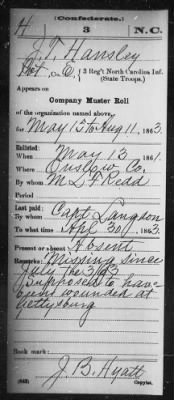 (Confederate.)
H 3 N.C.
J. T. Hansley
Pvt., Co. E, 3 Reg't North Carolina Inf.
(State Troops.)
Appears on
Company Muster Roll
of the organization named above,
for May 13 to Aug 11, 1863.
Enlisted:
When May 13, 1861.
Where Onslow Co.
By whom M. L. F. Redd
Period
Last paid:
By whom Capt Langdon
To what time Apl 30, 1863.
Present or absent Absent
Remarks: Missing since
July the 3rd 63
Supposed to have
been wounded at
Gettysburg
Book mark:
J. B. Hyatt
(642) Copyist.